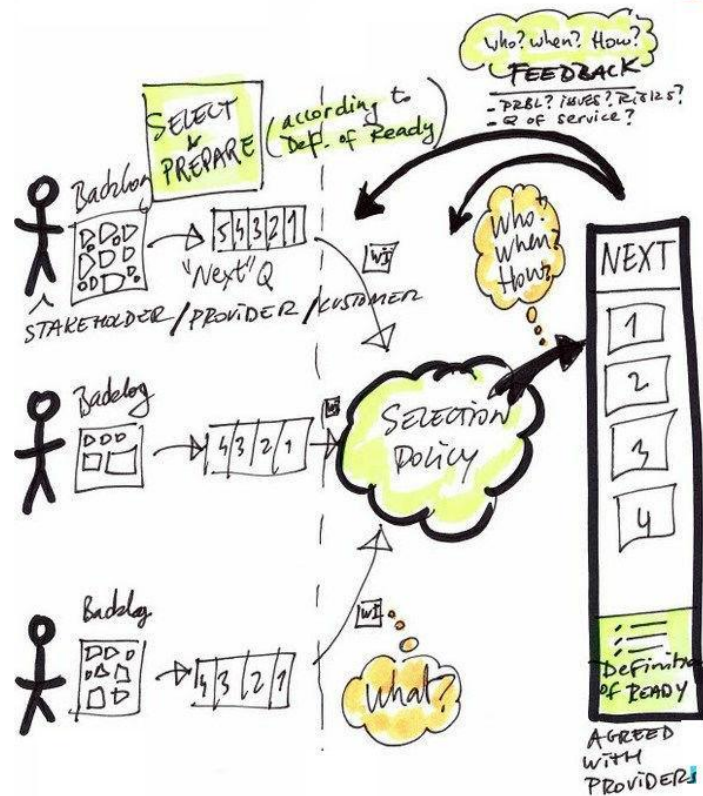 Who? when? How?
FEEDBACK
- PRBL? issues? Risks?
- Q of service?
SELECT
&
PREPARE
(according to
Def. of Ready)
Backlog
5 4 3 2 1
"Next" Q
STAKEHOLDER / PROVIDER / KUSTOMER
WI
Who?
When?
How?
NEXT
1
2
3
4
Backlog
4 3 2 1
WI
SELECTION
POLICY
Backlog
4 3 2 1
WI
What?
Definition
of READY
AGREED
WITH
PROVIDERS